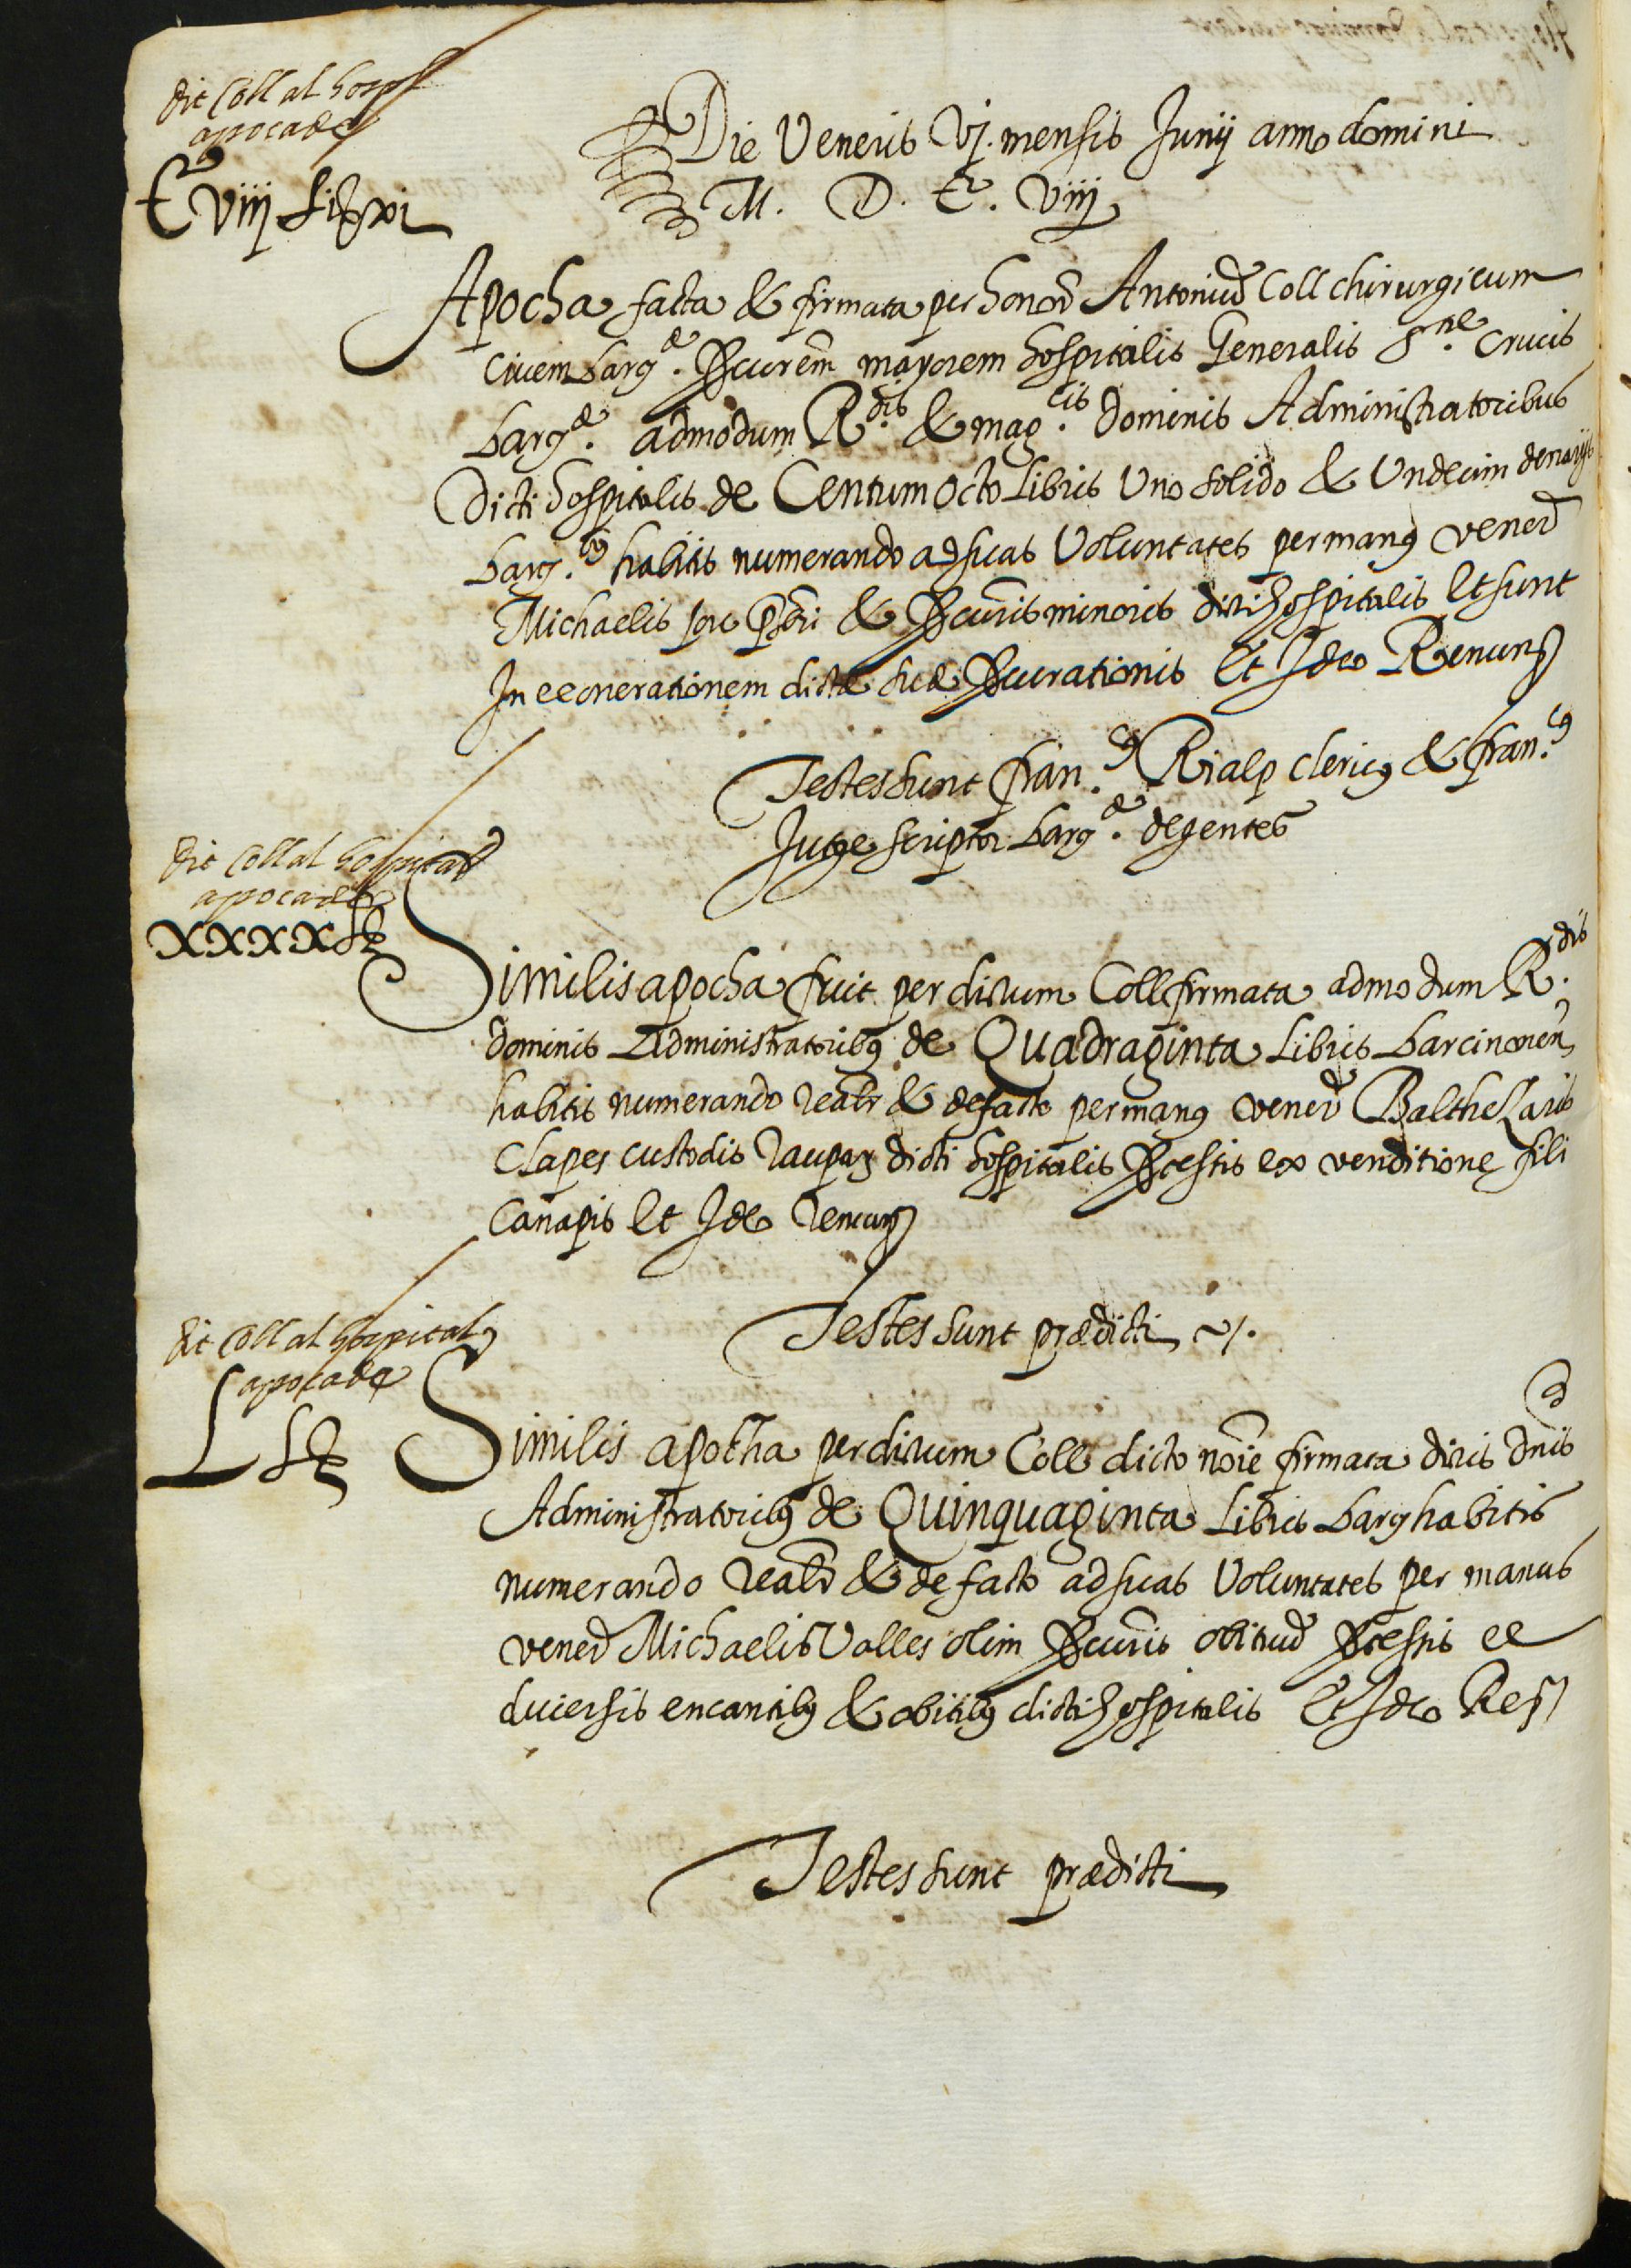 dit Coll al hospl
apocade
C viiij £ i ß xi
Die Veneris Vj. mensis Junij anno domini
M. D. C. Viiij
Apocha facta & firmata per honor Antoniu Coll chirurgicum
Civem barɋ.æ Procurem mayorem hospitalis Generalis S.tæ Crucis
barɋ.æ admodum R.dis & mag.cis Dominis Administratoribus
Dicti hospitalis de Centum Octo Libris Uno solido & Undecim denarijs
barɋ. habitis numerando ad suas Voluntates per manꝰ Vener
Michaelis prbri & Procuris minoris dicti hospitalis Et sunt
In eeonerationem dictæ suæ Procurationis Et Ideo Renunꝯ
Testes sunt fran.cꝰ Rialp clericꝰ & fran.cꝰ
Jutge scriptor barɋ.æ degentes
dit Coll al hospital
apocade
XXXX £
Similis apocha fuit per dictum Coll firmata admodum R.dis
dominis Administratoribꝰ de Quadraginta Libris barcinonen
habitis numerando realr & de facto per manꝰ vener Balthezaris
Clapes custodis raupaꝝ dicti hospitalis Procestis ex venditione fili
Canapis Et Ideo renunꝯ
Testes sunt prædicti
dit Coll al hospital
apocade
L £
Similis apocha per dictum Coll dicto noie firmata dictis dnis
Administratoribꝰ de Quinquaginta Libris barɋ habitis
numerando realr & de facto ad suas Voluntates per manus
vener Michaelis Valles olim Procuris obituu Procestis ee
diversis encantibꝰ & obitibꝰ dicti hospitalis Et Ideo Reꝯ
Testes sunt prædicti